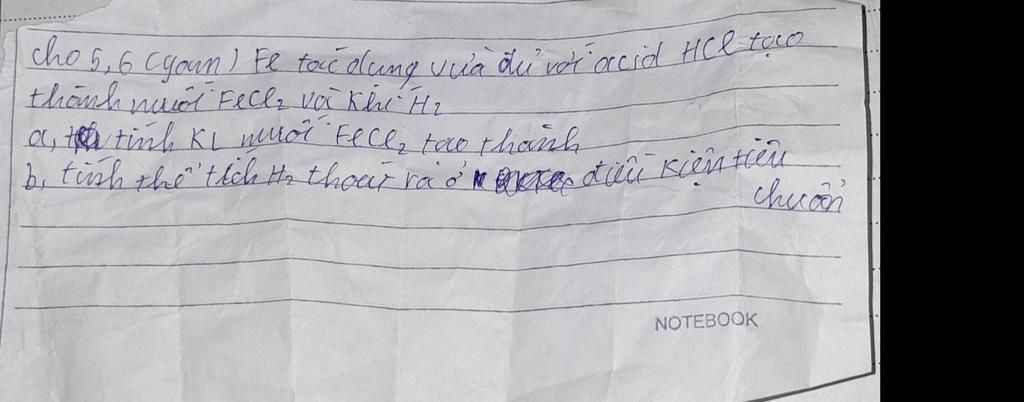 cho 5,6 (gam) Fe tác dụng vừa đủ với acid HCl tạo
thành muối FeCl₂ với khí H₂
a, tính KL muối FeCl₂ tạo thành
b, tính thể tích H₂ thoát ra ở điều kiện tiêu
chuẩn
NOTEBOOK